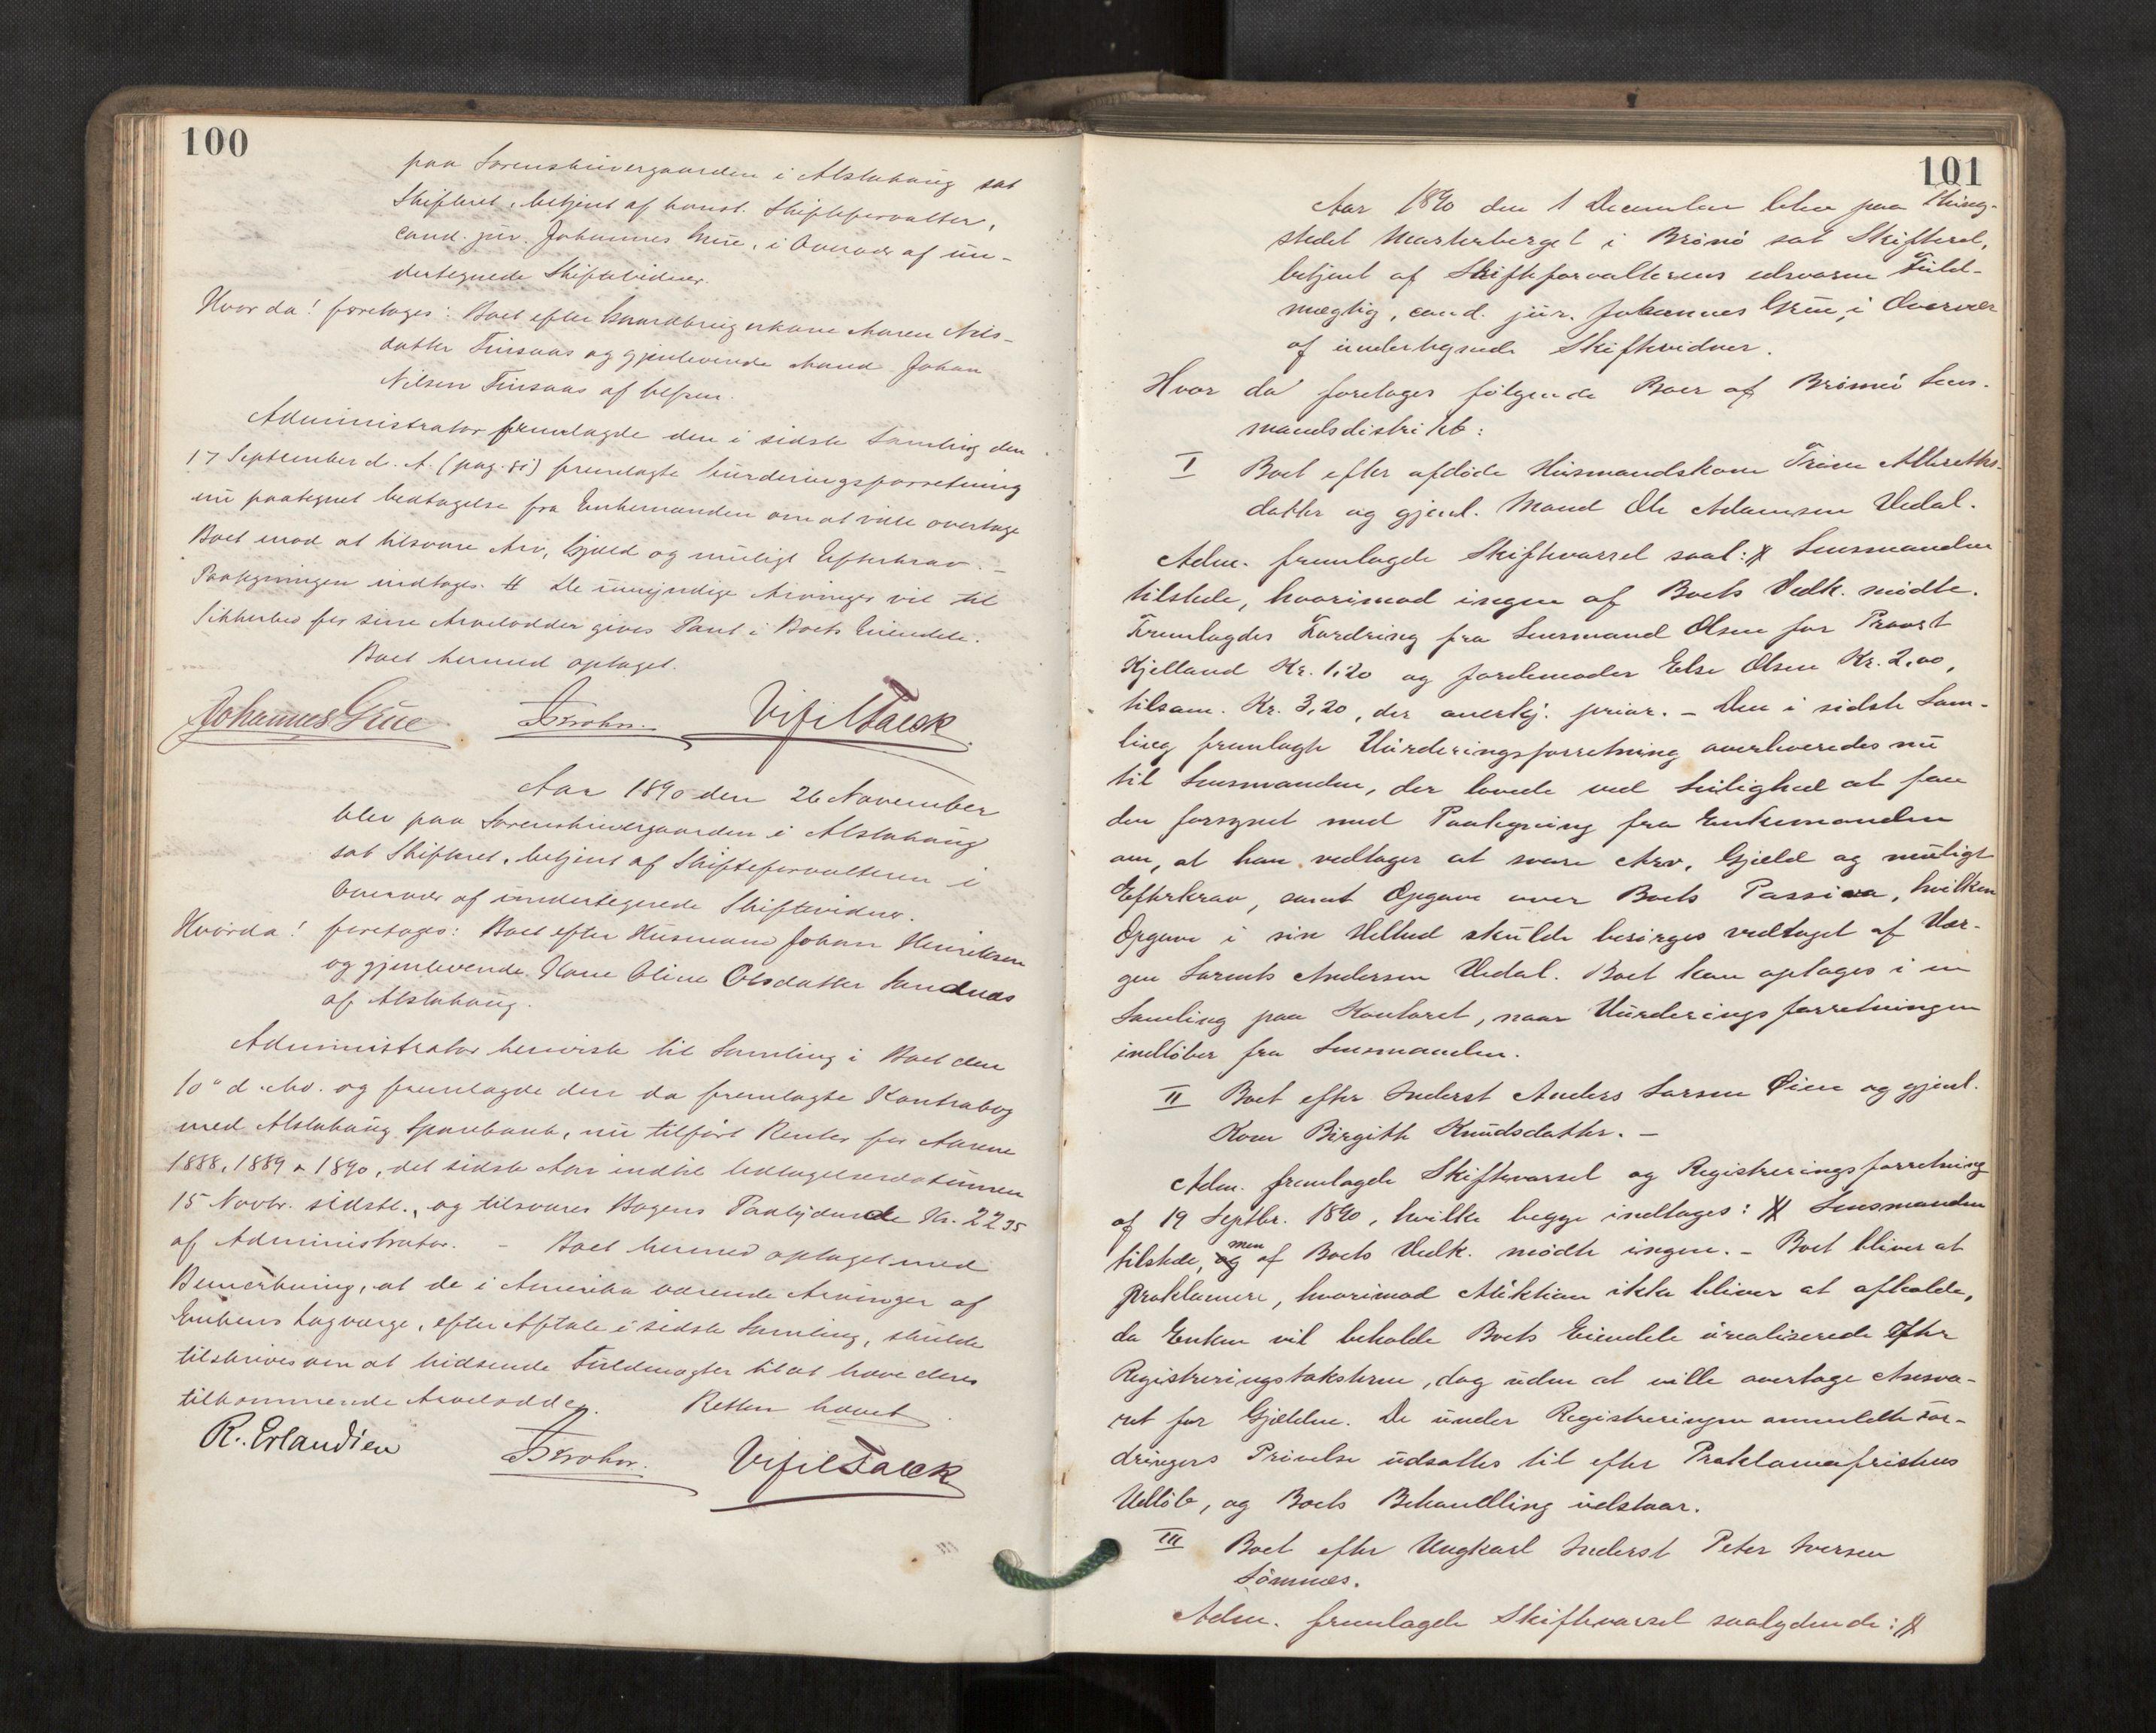 100
paa Sorenskrivergaarden i Alstahaug sat
Skifteret, betjent af konst. Skifteforvalter,
cand. jur. Johannes Grue, i Overvær af un-
dertegnede Skiftevidner.
Hvor da! foretoges: Boet efter Gaardbrugerkone Maren Nils-
datter Finsaas og gjenlevende Mand Johan
Nilsen Finsaas af Vefsen.
Administrator fremlagde den i sidste Samling den
17 September d. A. (pag. 81) fremlagte Vurderingsforretning
nu paategnet Vedtagelse fra Enkemanden om at ville overtage
Boet mod at tilsvare Arv, Gjæld og muligt Efterkrav. –
Paategningen indtages. # De umyndige Arvinger vil til
Sikkerhed for sine Arvelodder gives Pant i Boets Eiendele.
Boet hermed optaget.
Johannes Grue Vifil Falck
Aar 1890 den 26 November
blev paa Sorenskrivergaarden i Alstahaug
sat Skifteret, betjent af Skifteforvalteren i
Overvær af undertegnede Skiftevidner.
Hvorda! foretoges: Boet efter Husmand Johan Henriksen
og gjenlevende Kone Oline Olsdatter Sandnæs
af Alstahaug.
Administrator henviste til Samling i Boet den
10de d. Md. og fremlagde den da fremlagte Kontrabog
med Alstahaug Sparebank, nu tilført Renter for Aarene
1888, 1889 & 1890, det sidste Aar indtil Udtagelsesdatumen
15 Novbr. sidstl., og tilsvares Bogens Paalydende Kr. 22 35
af Administrator. – Boet hermed optaget med
Bemærkning, at de i Amerika værende Arvinger af
Enkens Lagværge, efter Aftale i sidste Samling, skulde
tilskrives om at hidsende Fuldmagter til at hæve deres
tilkommende Arvelodder. Retten hævet
R. Erlandsen Vifil Falck
101
Aar 1890 den 1 December blev paa Thing-
stedet Marterberget i Brønø sat Skifteret,
betjent af Skifteforvalterens edsvorne Fuld-
mægtig, cand. jur. Johannes Grue, i Overvær
af undertegnede Skiftevidner.
Hvor da foretoges følgende Boer af Brønnø Lens-
mandsdistrikt:
I Boet efter afdøde Husmandskone Trine Albrethts-
datter og gjenl. Mand Ole Adamsen Vedal.
Adm. fremlagde Skiftevarsel saal: # Lensmanden
tilstede, hvorimod ingen af Boets Vedk. mødte.
Fremlagdes Fordring fra Lensmand Olsen for Provst
Kjelland Kr. 1,20 og Jordemoder Else Olsen Kr. 2,00,
tilsam. Kr. 3,20, der anerkj. prior. – Den i sidste Sam-
ling fremlagte Vurderingsforretning overleveredes nu
til Lensmanden, der lovede ved Leilighed at faa
den forsynet med Paategning fra Enkemanden
om, at han vedtager at svare Arv, Gjæld og muligt
Efterkrav, samt Opgave over Boets Passiva, hvilken
Opgave i sin Helhed skulde besørges vedtaget af Vær-
gen Lorents Andersen Vedal. Boet kan optages i en
Samling paa Kontoret, naar Vurderingsforretningen
indløber fra Lensmanden.
II Boet efter Inderst Anders Larsen Øien og gjenl.
Kone Birgith Knudsdatter. –
Adm. fremlagde Skiftevarsel og Registreringsforretning
af 19 Septbr. 1890, hvilke begge indtages: # Lensmanden
tilstede, og men af Boets Vedk. mødte ingen. – Boet bliver at
proklamere, hvorimod Auktion ikke bliver at afholde,
da Enken vil beholde Boets Eiendele urealiserede efter
Registreringstaksterne, dog uden at ville overtage Ansva-
ret for Gjælden. De under Registreringen anmeldte For-
dringers Prøvelse udsattes til efter Proklamafristens
Udløb, og Boets Behandling udstaar.
III Boet efter Ungkarl Inderst Peter Iversen
Sømnes.
Adm. fremlagde Skiftevarsel saalydende: #